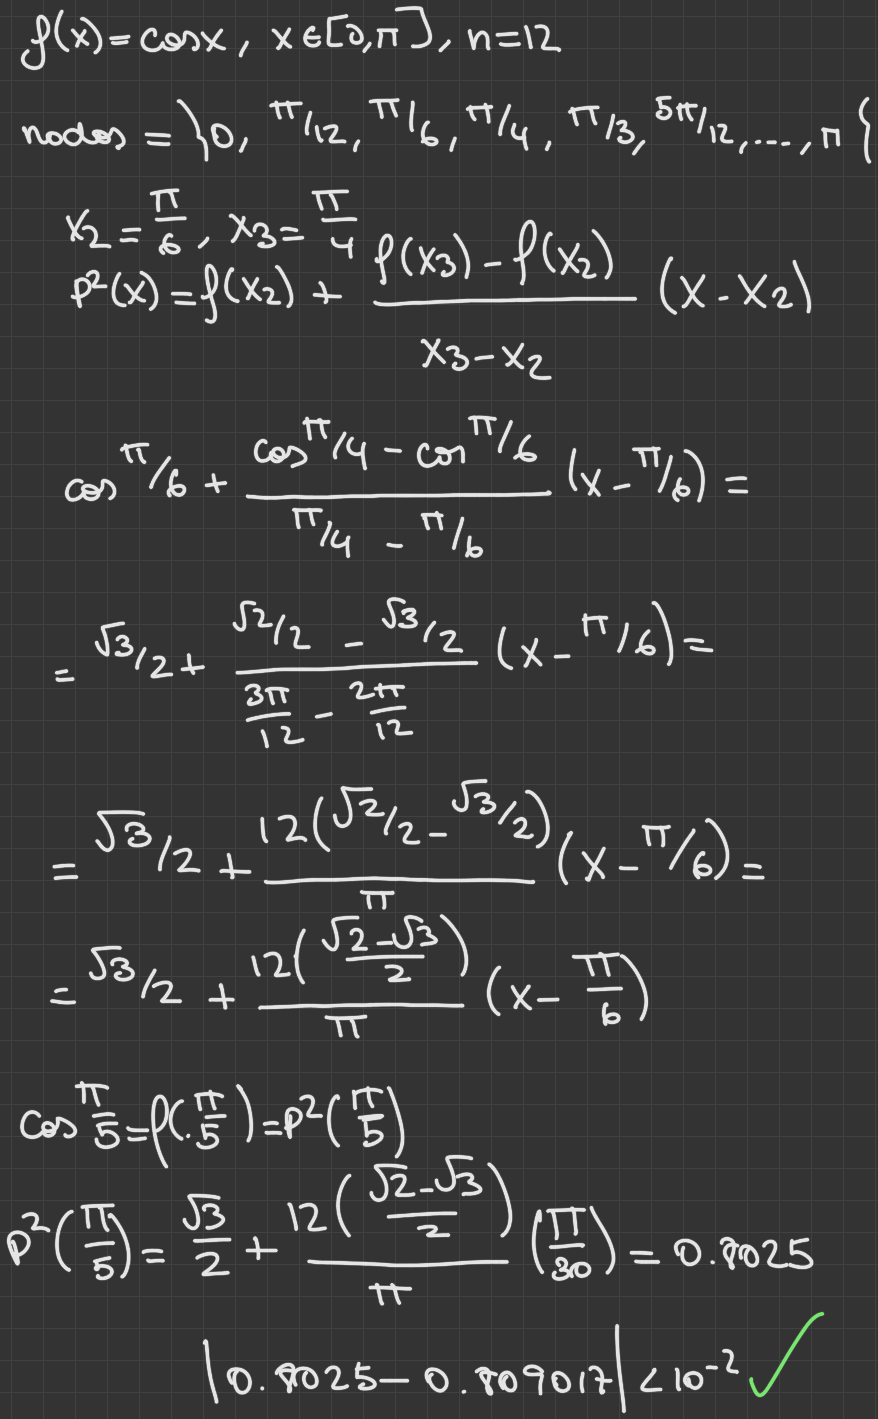 f(x) = cosx, x∈[0,π], n=12
nodos = }0, π/12, π/6, π/4, π/3, 5π/12, ..., π{
x₂ = π/6, x₃ = π/4
p²(x) = f(x₂) + (f(x₃) - f(x₂))/(x₃ - x₂) (x - x₂)
cos π/6 + (cos π/4 - cos π/6)/(π/4 - π/6) (x - π/6) =
= √3/2 + (√2/2 - √3/2)/(3π/12 - 2π/12) (x - π/6) =
= √3/2 + 12(√2/2 - √3/2)/π (x - π/6) =
= √3/2 + 12((√2-√3)/2)/π (x - π/6)
cos π/5 = f(π/5) = p²(π/5)
p²(π/5) = √3/2 + 12((√2-√3)/2)/π (π/30) = 0.8025
|0.8025 - 0.809017| < 10⁻² ✓